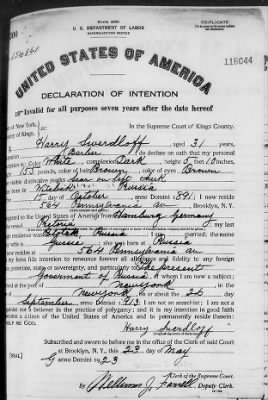 U. S. DEPARTMENT OF LABOR
NATURALIZATION SERVICE
116044
UNITED STATES OF AMERICA
DECLARATION OF INTENTION
Invalid for all purposes seven years after the date hereof
of New York,
In the Supreme Court of Kings County.
of Kings,
Harry Swerdloff, aged 31 years,
Barber, do declare on oath that my personal
Color White, complexion Dark, height 5 feet 10 inches,
153 pounds, color of hair Brown, color of eyes Brown
scar on left cheek
Russia
15 day of October, anno Domini 1891; I now reside
564 Pennsylvania av, Brooklyn, N.Y.
to the United States of America from Hamburg Germany
Pretoria; my last
Russia; I am married; the name
Gussie; she was born at Russia
564 Pennsylvania av
my bona fide intention to renounce forever all allegiance and fidelity to any foreign
potentate, state or sovereignty, and particularly to The present
Government of Russia, of whom I am now a subject;
at the port of New York
New York, on or about the 26 day
September, anno Domini 1913; I am not an anarchist; I am not a
nor a believer in the practice of polygamy; and it is my intention in good faith
of the United States of America and to permanently reside therein:
HELP ME GOD.
Harry Swerdloff
Subscribed and sworn to before me in the office of the Clerk of said Court
at Brooklyn, N.Y., this 23 day of May
[SEAL] anno Domini 1923
Clerk of the Supreme Court.
Deputy Clerk.